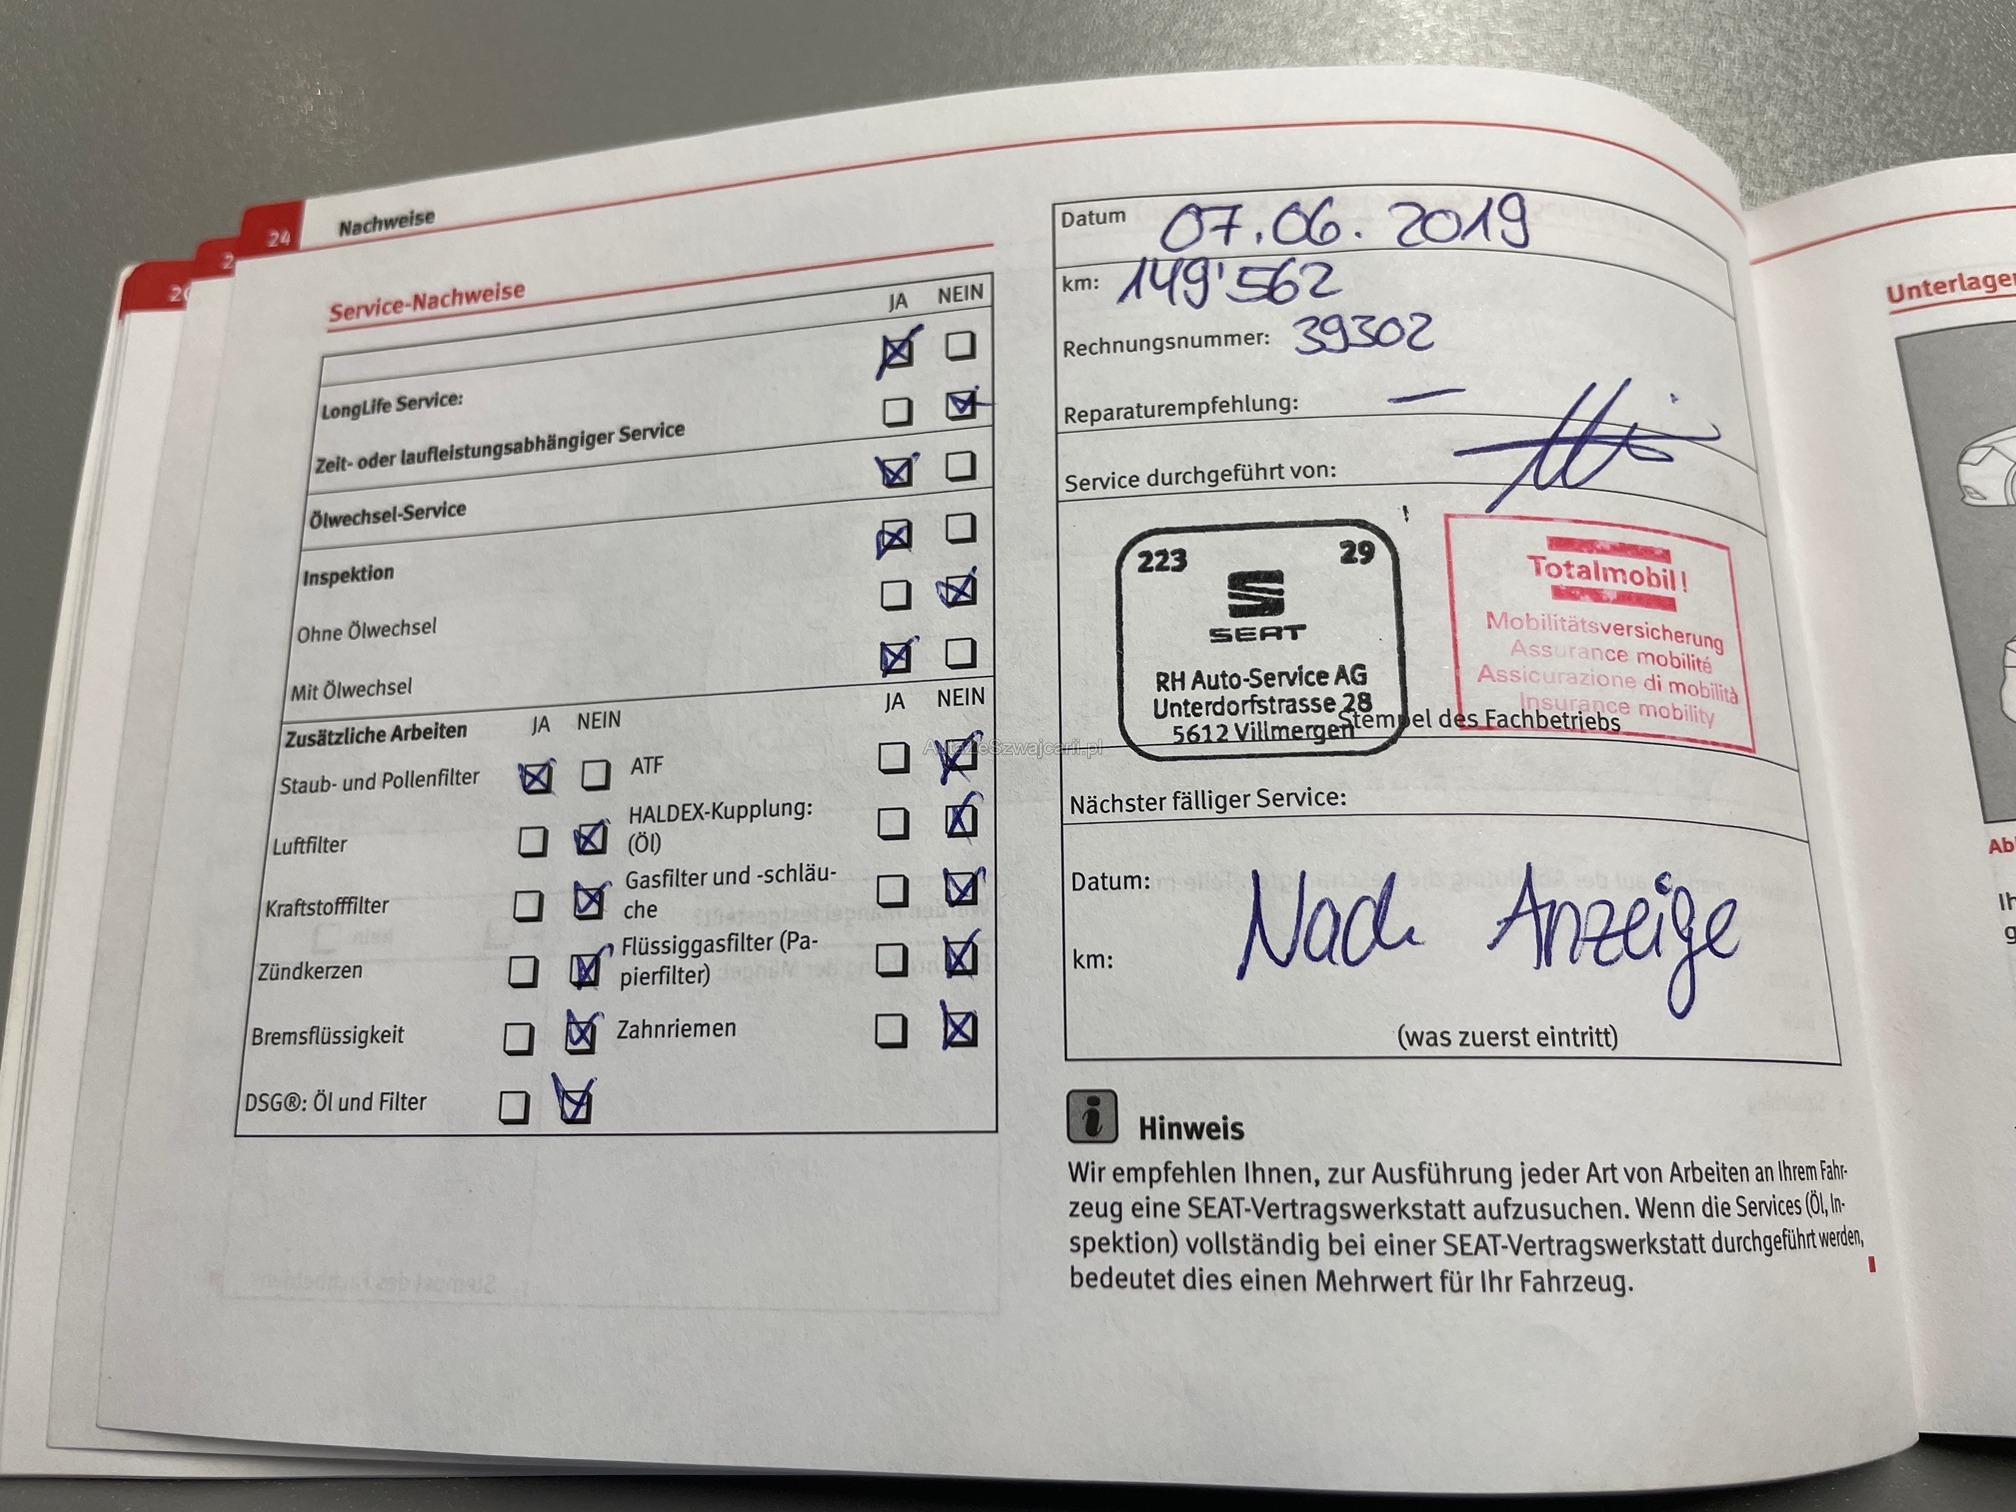 24
Nachweise
Service-Nachweise
JA NEIN
LongLife Service:
Zeit- oder laufleistungsabhängiger Service
Ölwechsel-Service
Inspektion
Ohne Ölwechsel
Mit Ölwechsel
JA NEIN
Zusätzliche Arbeiten JA NEIN
Staub- und Pollenfilter
ATF
Luftfilter
HALDEX-Kupplung:
(Öl)
Kraftstofffilter
Gasfilter und -schläu-
che
Zündkerzen
Flüssiggasfilter (Pa-
pierfilter)
Bremsflüssigkeit
Zahnriemen
DSG®: Öl und Filter
Datum 07.06.2019
km: 149'562
Rechnungsnummer: 39302
Reparaturempfehlung: —
Service durchgeführt von:
223 29
SEAT
RH Auto-Service AG
Unterdorfstrasse 28
5612 Villmergen
Totalmobil!
Mobilitätsversicherung
Assurance mobilité
Assicurazione di mobilità
Insurance mobility
Stempel des Fachbetriebs
AutaZeSzwajcarii.pl
Nächster fälliger Service:
Datum:
Nach Anzeige
km:
(was zuerst eintritt)
i Hinweis
Wir empfehlen Ihnen, zur Ausführung jeder Art von Arbeiten an Ihrem Fahr-
zeug eine SEAT-Vertragswerkstatt aufzusuchen. Wenn die Services (Öl, In-
spektion) vollständig bei einer SEAT-Vertragswerkstatt durchgeführt werden,
bedeutet dies einen Mehrwert für Ihr Fahrzeug.